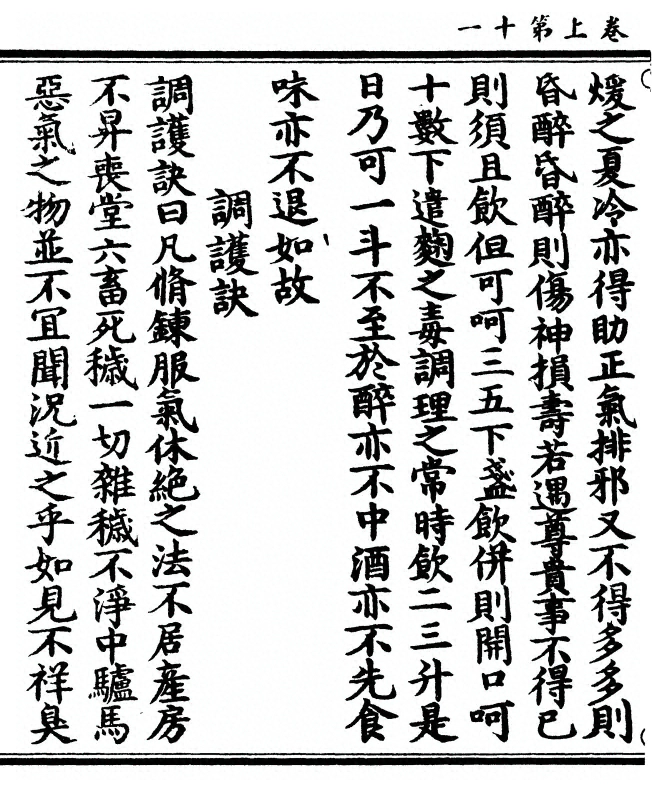 卷上第十一
煖之夏冷亦得助正氣排邪又不得多多則
昏醉昏醉則傷神損壽若遇尊貴事不得已
則須且飲但可呵三五下盞飲併則開口呵
十數下遣麴之毒調理之常時飲二三升是
日乃可一斗不至於醉亦不中酒亦不先食
味亦不退如故
調護訣
調護訣曰凡脩鍊服氣休絶之法不居産房
不昇喪堂六畜死穢一切雜穢不淨中驢馬
惡氣之物並不冝聞況近之乎如見不祥臭